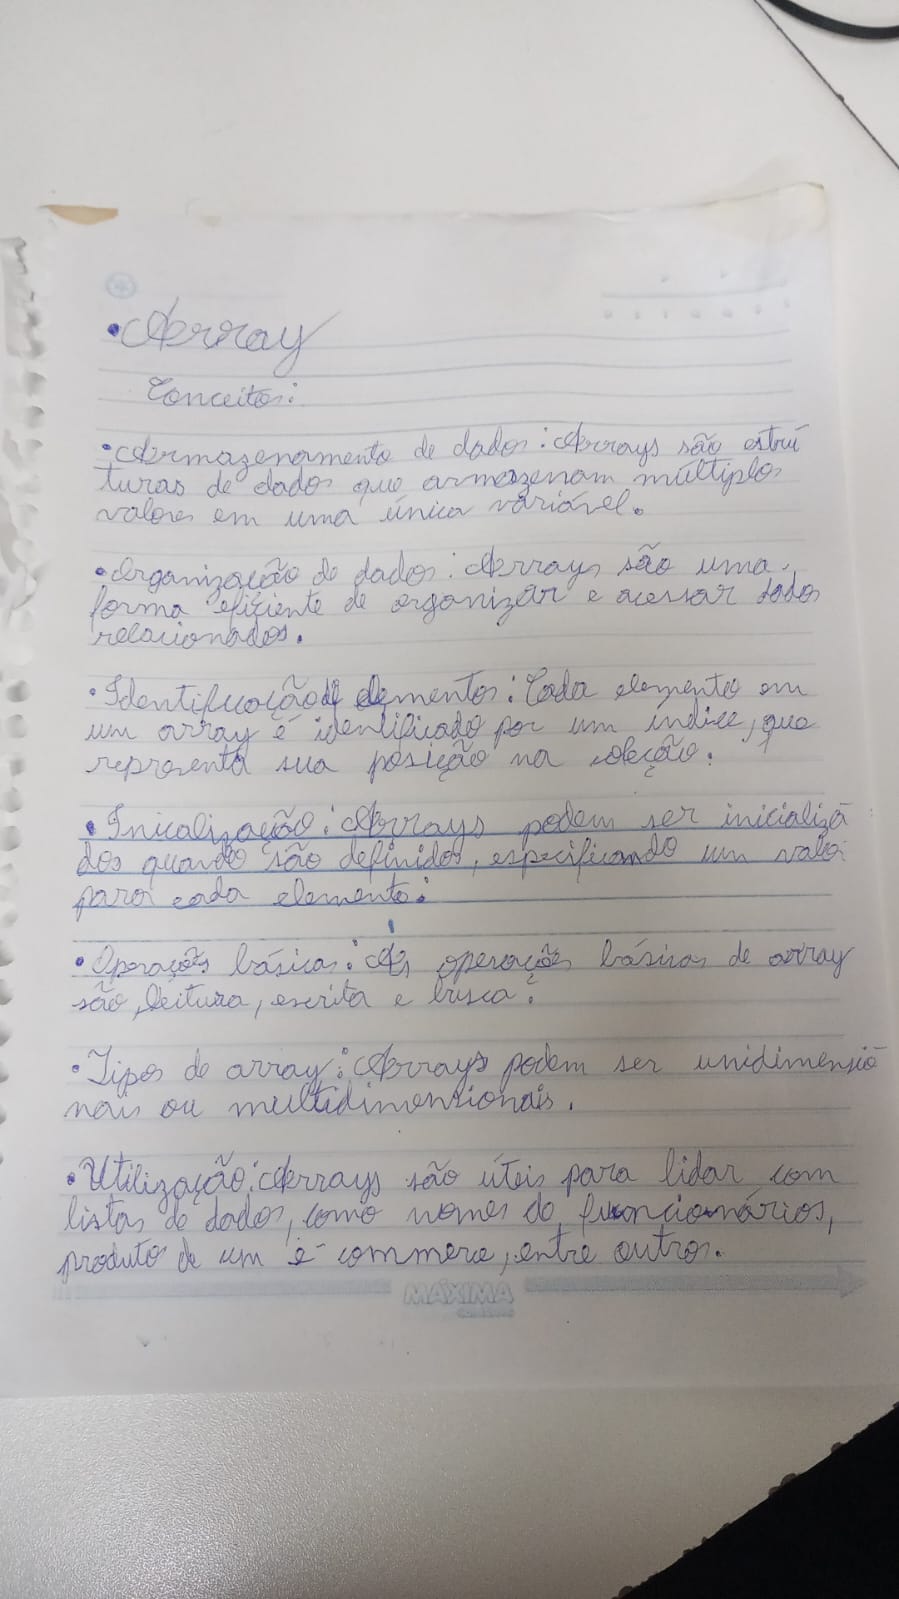 •Array
Conceitos:
•Armazenamento de dados: Arrays são estru
turas de dados que armazenam múltiplos
valores em uma única variável.
•Organização de dados: Arrays são uma
forma eficiente de organizar e acessar dados
relacionados.
•Identificação de elementos: Cada elemento em
um array é identificado por um índice, que
representa sua posição na coleção.
•Inicalização: Arrays podem ser inicializa
dos quando são definidos, especificando um valor
para cada elemento.
•Operações básicas: As operações básicas de array
são, leitura, escrita e busca.
•Tipos de array: Arrays podem ser unidimensio
nais ou multidimensionais.
•Utilização: Arrays são úteis para lidar com
listas de dados, como nomes de funcionários,
produtos de um e-commerce, entre outros.
MÁXIMA